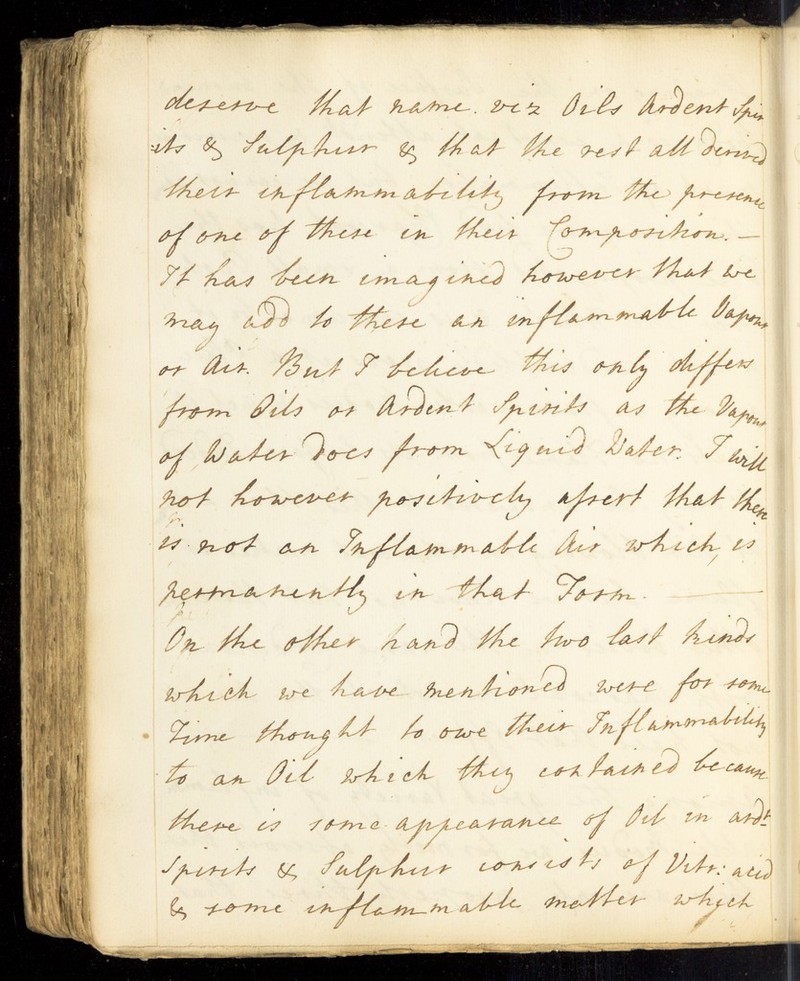 deserve that name. viz Oils Ardent Spir
=its & Sulphur & that the rest all derived
their inflammability from the presence
of one of these in their Composition. —
It has been imagined however that we
may add to these an inflammable Vapour
or Air. But I believe this only differs
from Oils or Ardent Spirits as the Vapour
of Water does from Liquid Water. I will
not however positively assert that there
is not an Inflammable Air which, is
permanently in that Form. —
On the other hand the two last kinds
which we have mentioned were for some
Time thought to owe their Inflammability
to an Oil which they contained because
there is some appearance of Oil in ardt
Spirits & Sulphur consists of Vitr: acid
& some inflammable matter which